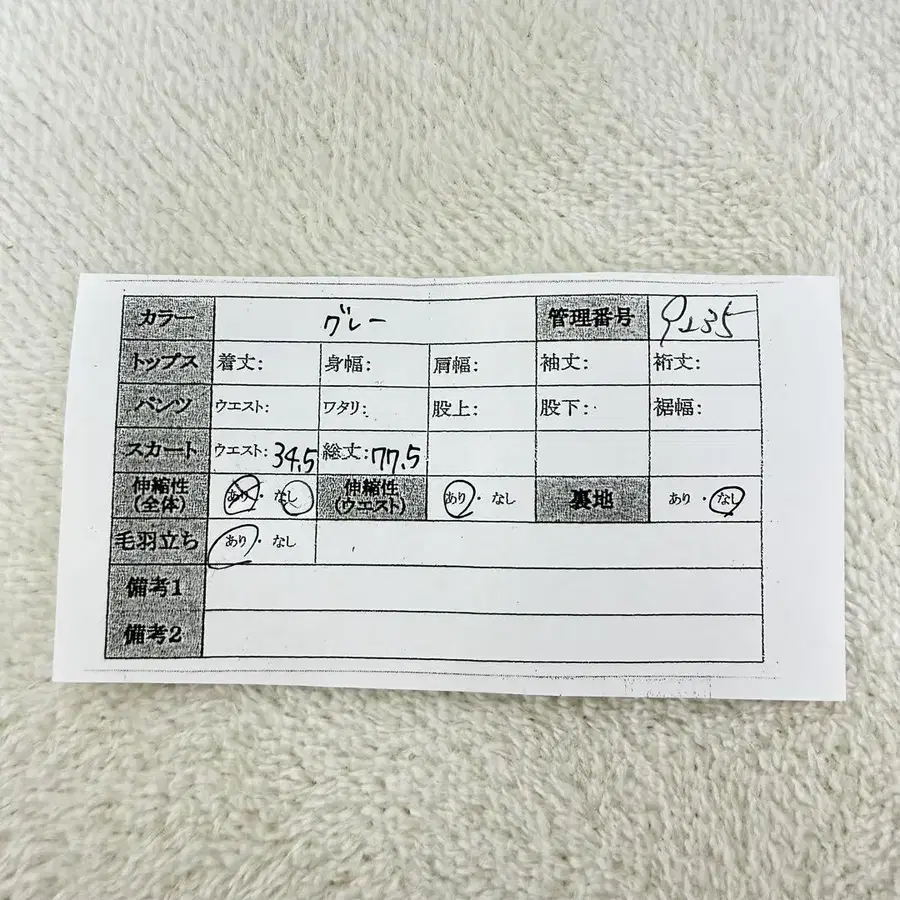 カラー グレー 管理番号 9235
トップス 着丈: 身幅: 肩幅: 袖丈: 裄丈:
パンツ ウエスト: ワタリ: 股上: 股下: 裾幅:
スカート ウエスト: 34.5 総丈: 77.5
伸縮性(全体) あり・なし 伸縮性(ウエスト) あり・なし 裏地 あり・なし
毛羽立ち あり・なし
備考1
備考2